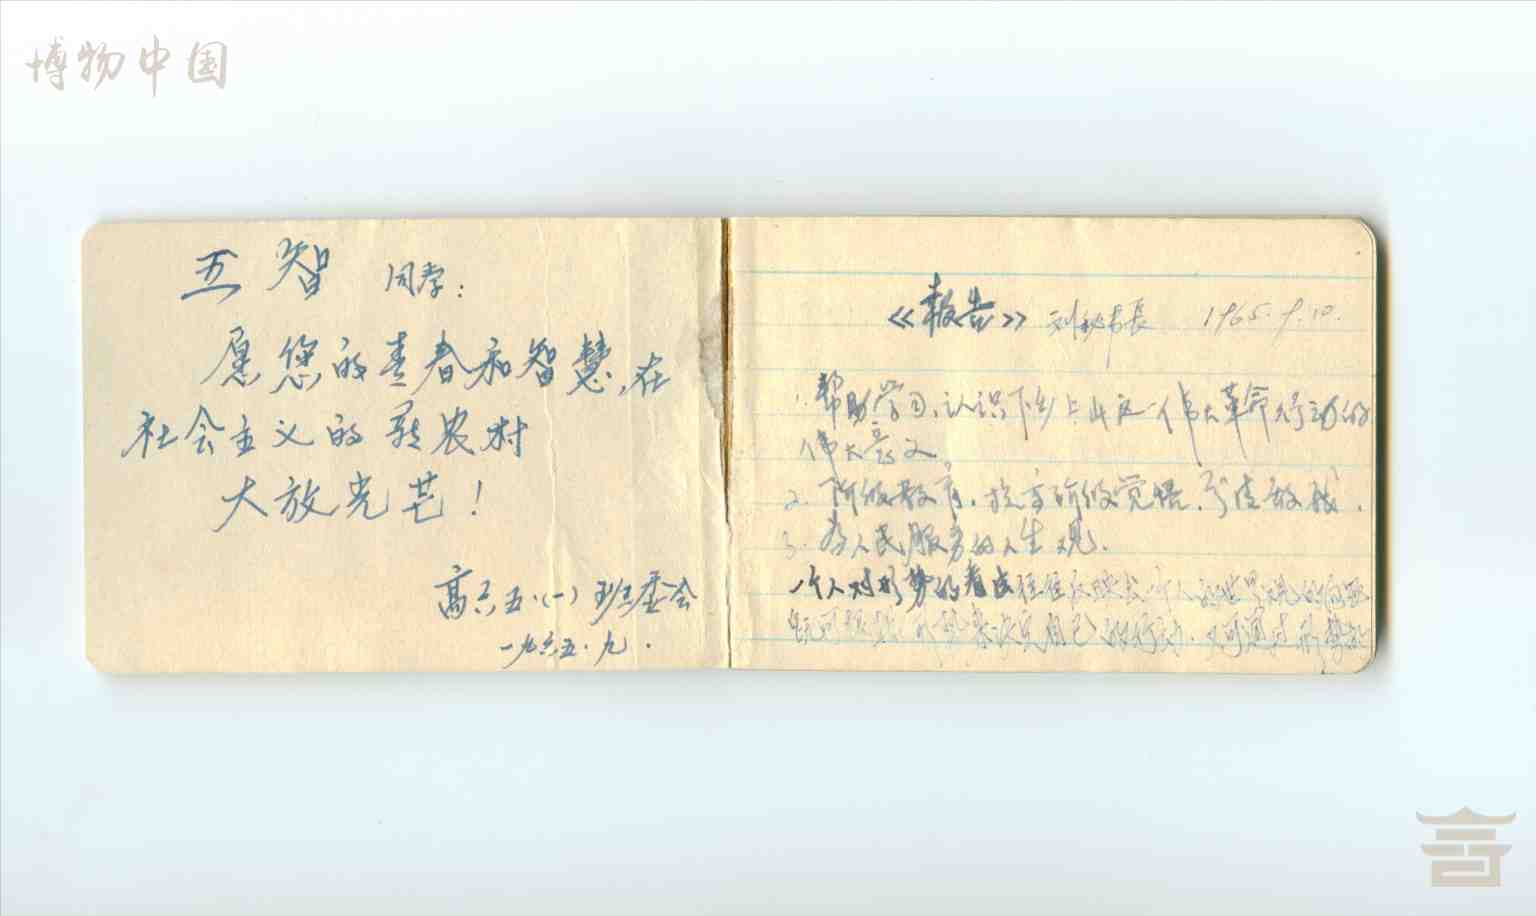 博物中国
五智 同学：
愿您的青春和智慧，在
社会主义的新农村
大放光芒！
高六五·(一)班委会
一九六五·九·
《报告》 刘秘书长 1965.9.10.
1. 帮助学习，认识下乡上山这一伟大革命行动的
伟大意义
2. 阶级教育，提高阶级觉悟，
3. 为人民服务的人生观.
一个人对形势的看法往往反映出一个人的世界观的问题
自己的行动，又可通过形势